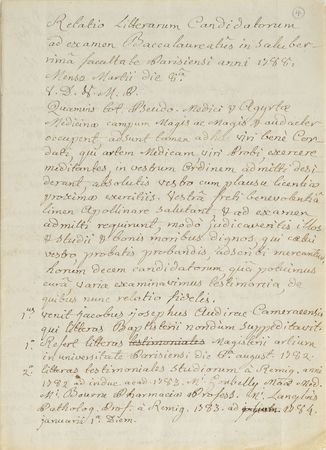 4
Relatio Litterarum Candidatorum
ad examen Baccalaureatûs in saluber-
rimâ facultate Parisiensi anni 1788.
Mense Martii die 8ª
Quamvis tot Pseudo-Medici & Agyrtæ
Medicinæ campum Magis ac Magis & audacter
occupent, adsunt tamen adhuc viri benè Cor-
dati, qui artem Medicam viri Probi, exercere
meditantes, in vestrum Ordinem admitti desi-
derant, absolutis vestro cum plausu licentiæ
proximæ exercitiis. Vestrâ freti benevolentiâ
limen Apollinare salutant, & ad examen
admitti requirunt, modò judicaveritis illos
& studii & bonis moribus dignos qui cœtui
vestro probatis probandis adscribi mereantur.
horum decem candidatorum, quâ potuimus
curâ, varia examinavimus testimonia, de
quibus nunc relatio fidelis.
1us venit Jacobus josephus Audirac Cameracensis
qui litteras Baptisterii nondum suppeditavit.
1º Refert litteras testimoniales Magisterii artium
in universitate Parisiensi die 6ª august 1782.
2º litteras testimoniales studiorum à Remig. anni
1782 ad 1783. Mr
Mr Bourru Pharmaciæ Profess. Mr Langlois
Patholog. Prof. à Remig. 1783. ad 1784.
januarii 1ª Diem.